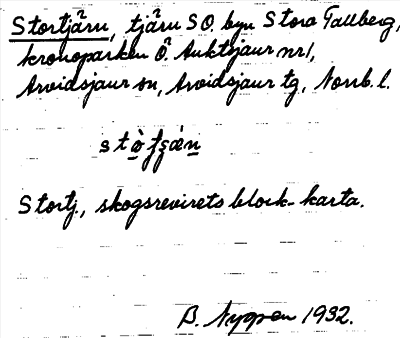 Stortjärn, tjärn SO byn Stora Tallberg,
kronoparken Ö. Auktsjaur nr 1,
Arvidsjaur sn, Arvidsjaur tg, Norrb. l.
Stortj., skogsrevirets block-karta.
B. Nygren 1932.